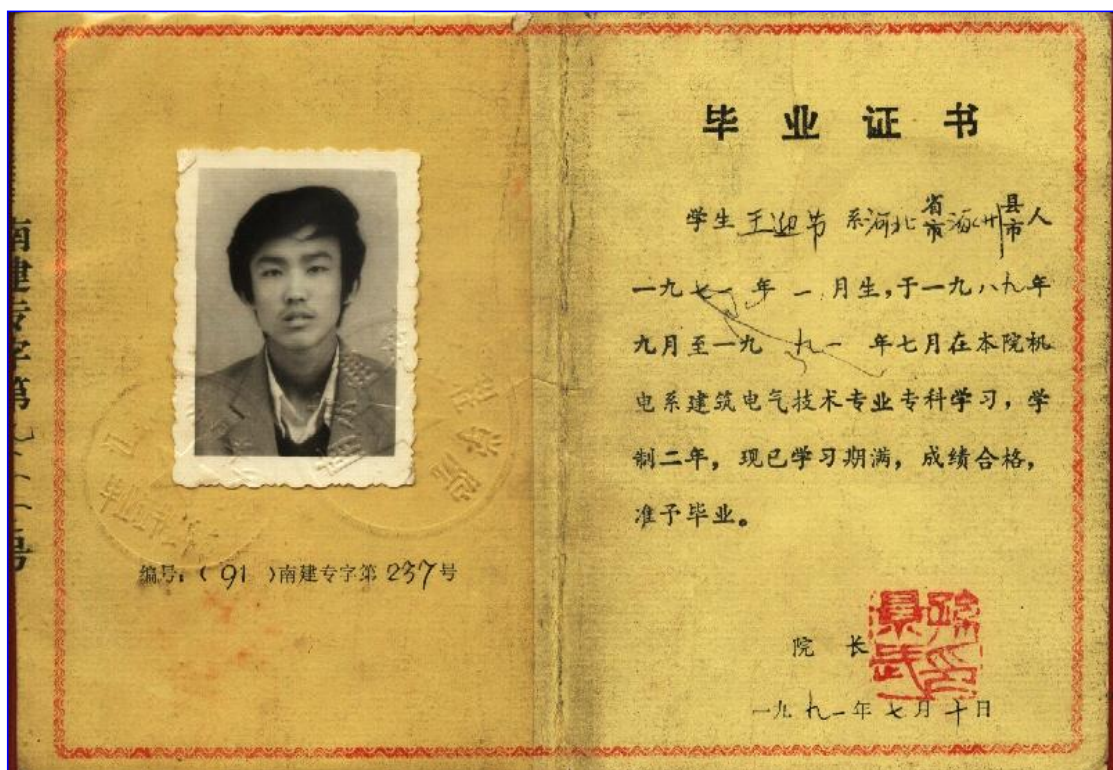 南建专字第
号
编号：（91）南建专字第237号
毕业证书
学生王迎节系河北省市涿州县市人
一九七一年一月生，于一九八九年
九月至一九九一年七月在本院机
电系建筑电气技术专业专科学习，学
制二年，现已学习期满，成绩合格，
准予毕业。
院长
一九九一年七月十日